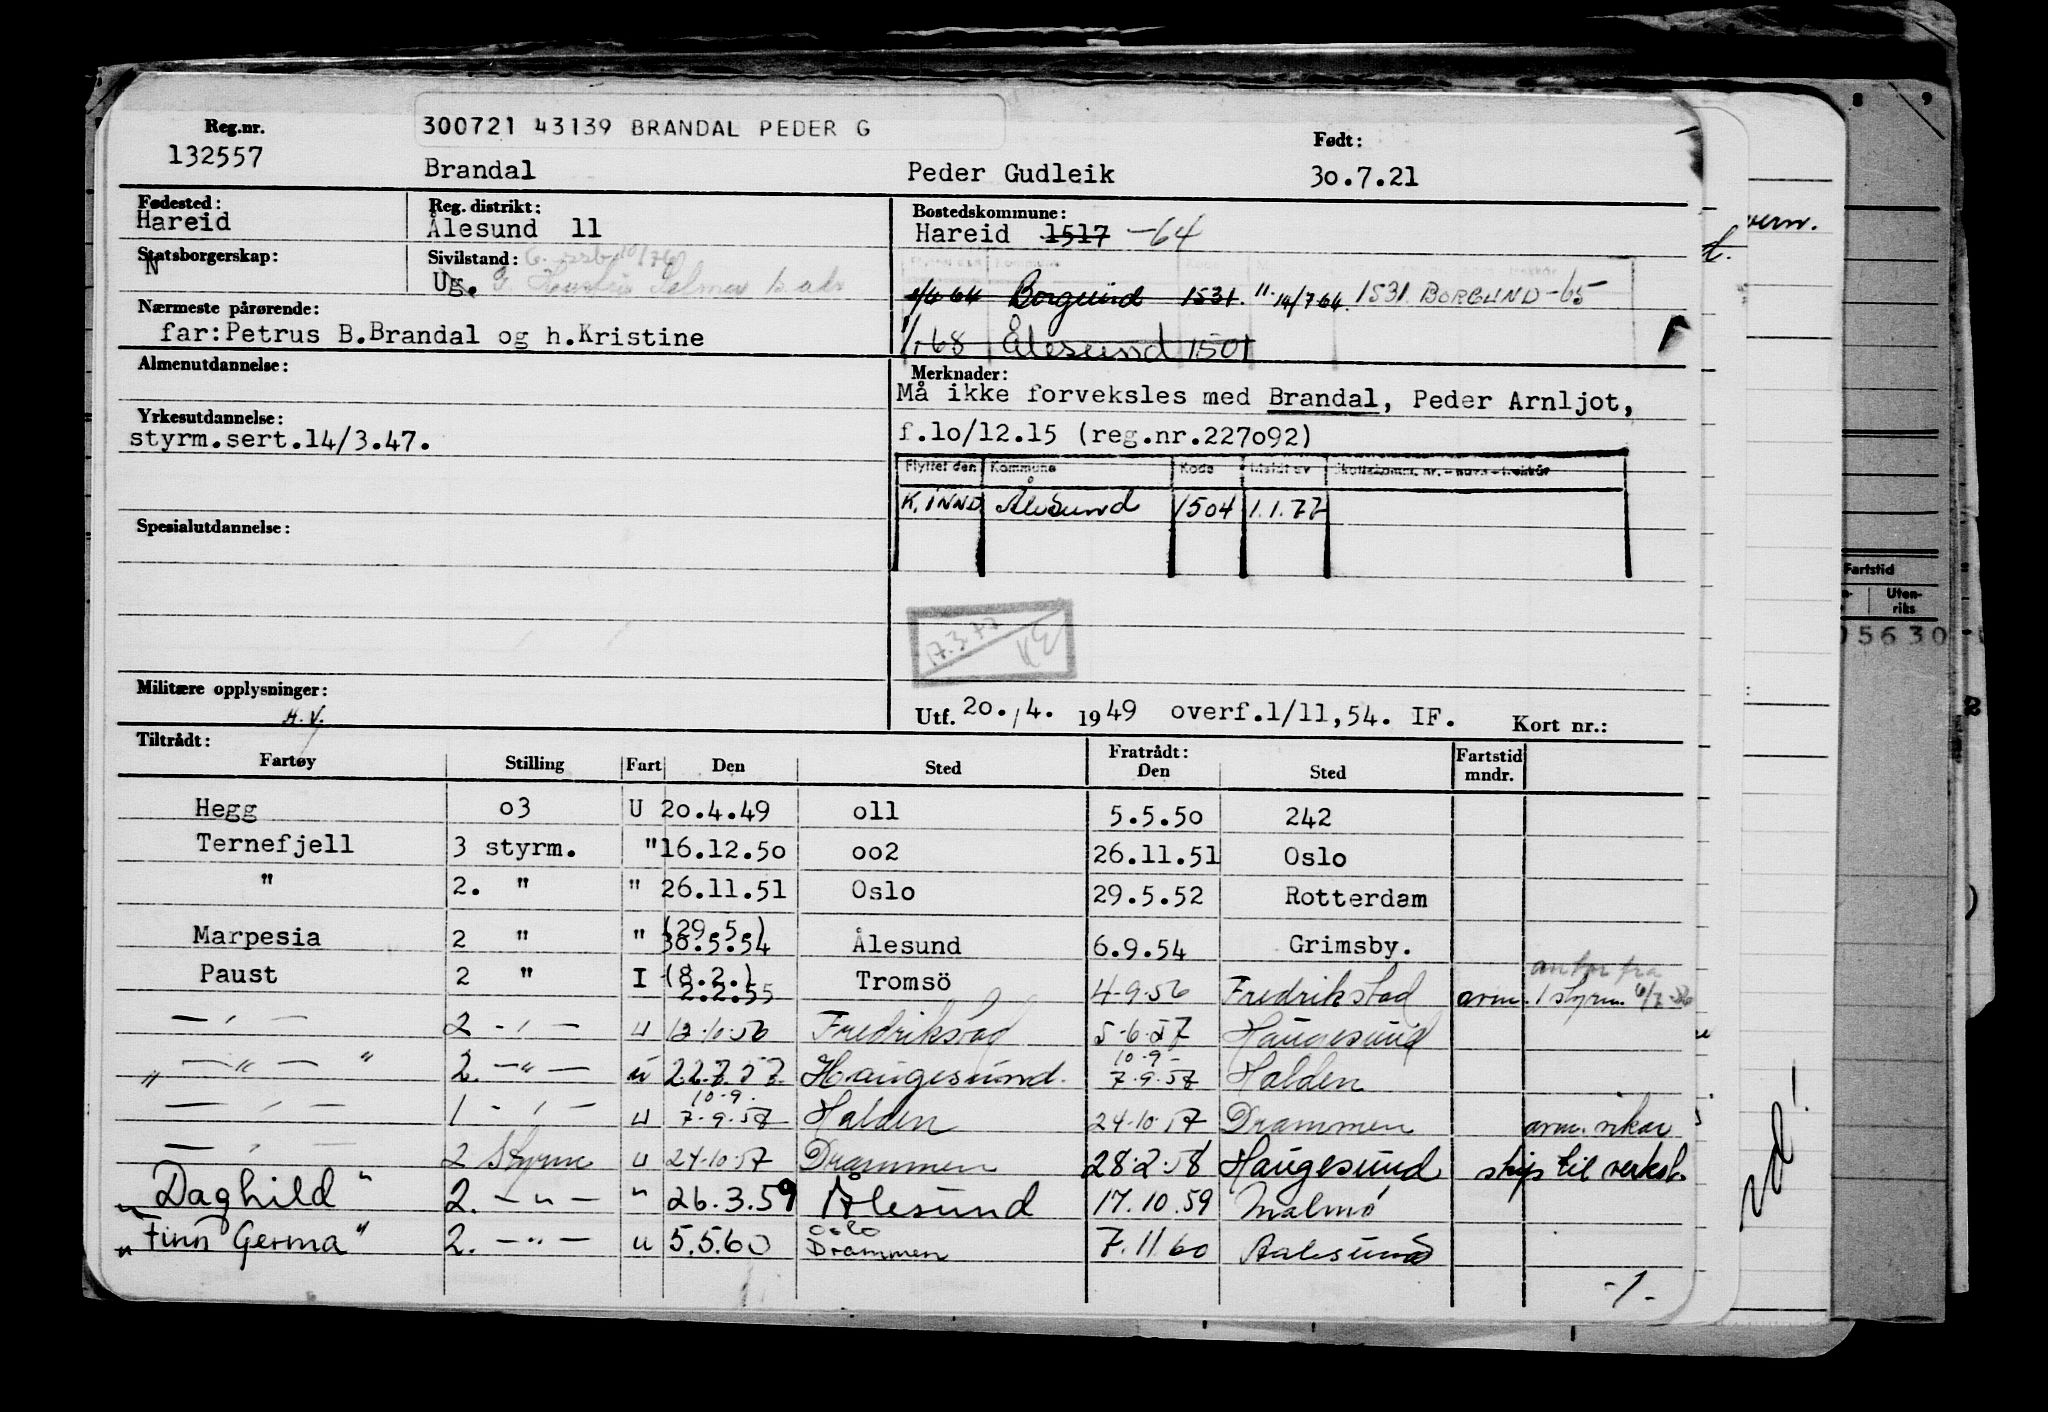 Reg.nr.
132557
300721 43139 BRANDAL PEDER G
Brandal Peder Gudleik
Født:
30.7.21
Fødested:
Hareid
Reg. distrikt:
Ålesund 11
Bostedskommune:
Hareid 1517 -64
Statsborgerskap:
N
Sivilstand:
Ug.
1/4 64 Borgund 1531. " 14/7 64. 1531 BORGUND -65
Nærmeste pårørende:
far: Petrus B.Brandal og h.Kristine
1/1 68 Ålesund 1501
Almenutdannelse:
Merknader:
Må ikke forveksles med Brandal, Peder Arnljot,
f.10/12.15 (reg.nr.227092)
Yrkesutdannelse:
styrm.sert.14/3.47.
Flyttet den Kommune Kode Meldt av
K. INND Ålesund 1504 1.1.77
Spesialutdannelse:
17.3.77
Militære opplysninger:
H.V.
Utf. 20./4. 1949 overf.1/11,54. IF. Kort nr.:
Tiltrådt: Fratrådt:
Fartøy Stilling Fart Den Sted Den Sted Fartstid mndr.
Hegg 03 U 20.4.49 011 5.5.50 242
Ternefjell 3 styrm. " 16.12.50 002 26.11.51 Oslo
" 2. " " 26.11.51 Oslo 29.5.52 Rotterdam
(29.5.)
Marpesia 2 " " 30.5.54 Ålesund 6.9.54 Grimsby.
(8.2.)
Paust 2 " I 2.2.55 Tromsö 4-9-56 Fredrikstad avm. 1 styrm. 6/7-56
— " — 2 - " — u 12-10-56 Fredrikstad 5-6-57 Haugesund
10-9-
" — " — " 2. — " — u 22.7.57. Haugesund. 7-9-57 Halden
10-9.
— " — 1 - " — u 7-9-57 Halden 24-10-57 Drammen avm. vikar
— " — 2 Styrm u 24-10-57 Drammen 28-2-58 Haugesund skip til verkst.
" Daghild " 2. — " — " 26.3.59 Ålesund 17.10.59 Malmö
Oslo
" Finn Germa " 2. — " — u 5.5.60 Drammen 7.11 60 Aalesund
-1-
8 9
Fartstid
Uten-
riks
5630